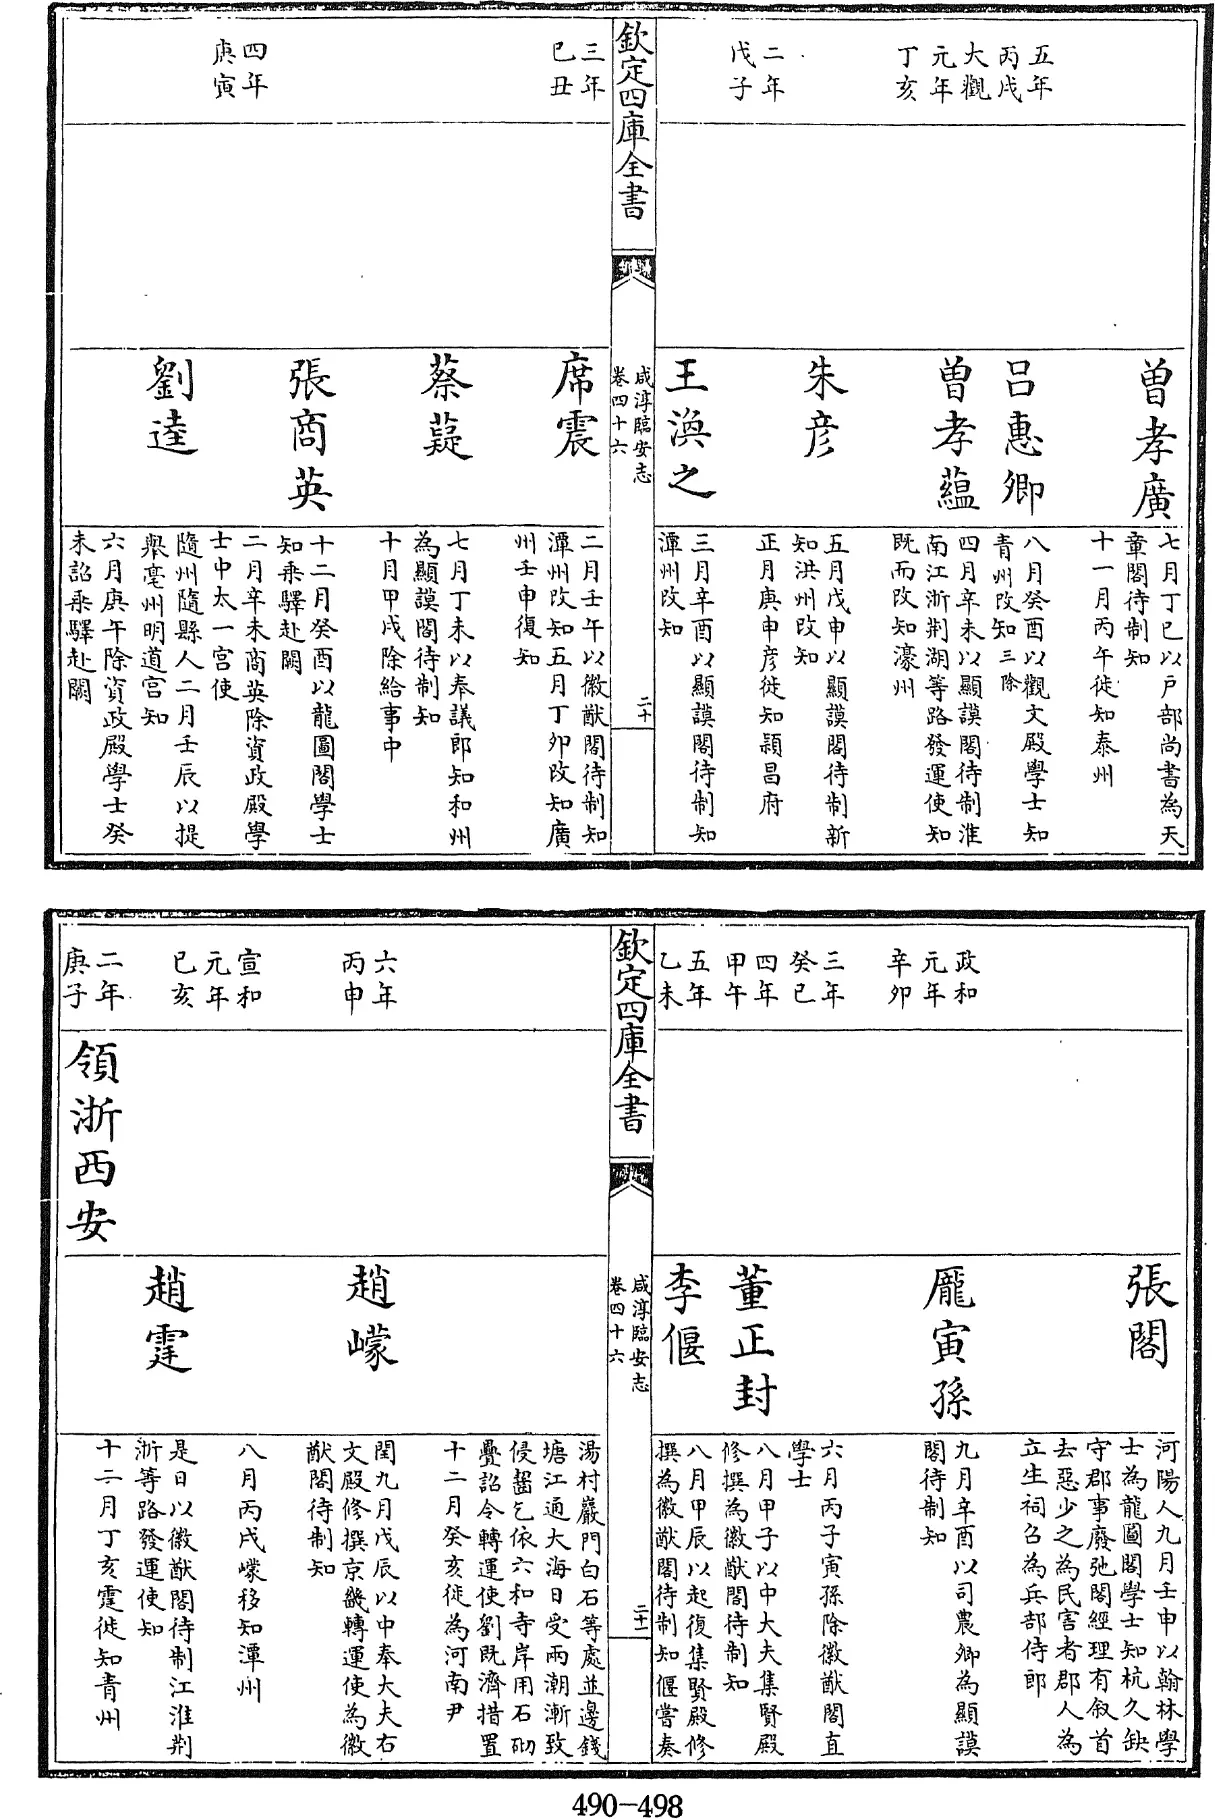 五年
丙戌
大觀
元年
丁亥
二年
戊子
曾孝廣
呂惠卿
曾孝蘊
朱彦
王渙之
七月丁巳以戸部尚書為天
章閣待制知
十一月丙午徙知泰州
八月癸酉以觀文殿學士知
青州改知三除
四月辛未以顯謨閣待制淮
南江浙荆湖等路發運使知
既而改知濠州
五月戊申以顯謨閣待制新
知洪州改知
正月庚申彦徙知潁昌府
三月辛酉以顯謨閣待制知
潭州改知
欽定四庫全書
咸淳臨安志
卷四十六
二十
三年
已丑
四年
庚寅
席震
蔡薿
張商英
劉逵
二月壬午以徽猷閣待制知
潭州改知五月丁卯改知廣
州壬申復知
七月丁未以奉議郎知和州
為顯謨閣待制知
十月甲戌除給事中
十二月癸酉以龍圖閣學士
知乘驛赴闕
二月辛未商英除資政殿學
士中太一宫使
隨州隨縣人二月壬辰以提
舉亳州明道宫知
六月庚午除資政殿學士癸
未詔乘驛赴闕
政和
元年
辛卯
三年
癸已
四年
甲午
五年
乙未
張閣
龎寅孫
董正封
李偃
河陽人九月壬申以翰林學
士為龍圖閣學士知杭久缺
守郡事廢弛閣經理有叙首
去惡少之為民害者郡人為
立生祠召為兵部侍郎
九月辛酉以司農卿為顯謨
閣待制知
六月丙子寅孫除徽猷閣直
學士
八月甲子以中大夫集賢殿
修撰為徽猷閣待制知
八月甲辰以起復集賢殿修
撰為徽猷閣待制知偃嘗奏
欽定四庫全書
咸淳臨安志
卷四十六
二十一
六年
丙申
宣和
元年
已亥
二年
庚子
領浙西安
趙㠓
趙霆
湯村巖門白石等處並邊錢
塘江通大海日受兩潮漸致
侵齧乞依六和寺岸用石砌
疊詔令轉運使劉既濟措置
十二月癸亥徙為河南尹
閏九月戊辰以中奉大夫右
文殿修撰京畿轉運使為徽
猷閣待制知
八月丙戌㠓移知潭州
是日以徽猷閣待制江淮荆
浙等路發運使知
十二月丁亥霆徙知青州
490-498